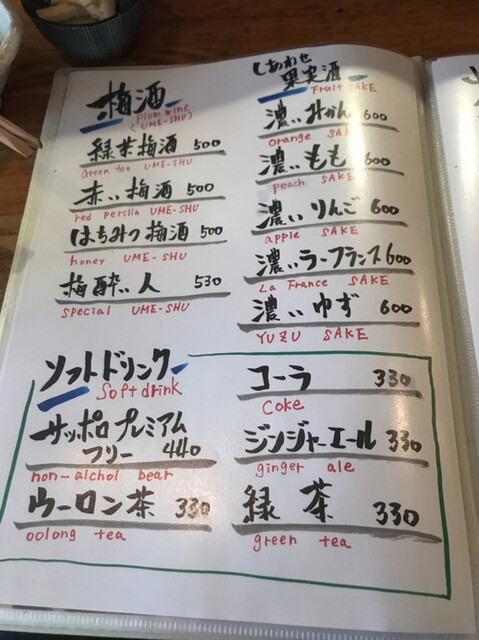 梅酒
Plum wine
(UME-SHU)
緑茶梅酒 500
Green tea UME-SHU
赤い梅酒 500
red perilla UME-SHU
はちみつ梅酒 500
honey UME-SHU
梅酔い人 530
special UME-SHU
しあわせ
果実酒
Fruit SAKE
濃いみかん 600
orange SAKE
濃いもも 600
peach SAKE
濃いりんご 600
apple SAKE
濃いラ・フランス 600
La France SAKE
濃いゆず 600
YUZU SAKE
ソフトドリンク
Soft drink
サッポロプレミアム
フリー 440
non-alchol bear
ウーロン茶 330
oolong tea
コーラ 330
Coke
ジンジャーエール 330
ginger ale
緑茶 330
green tea